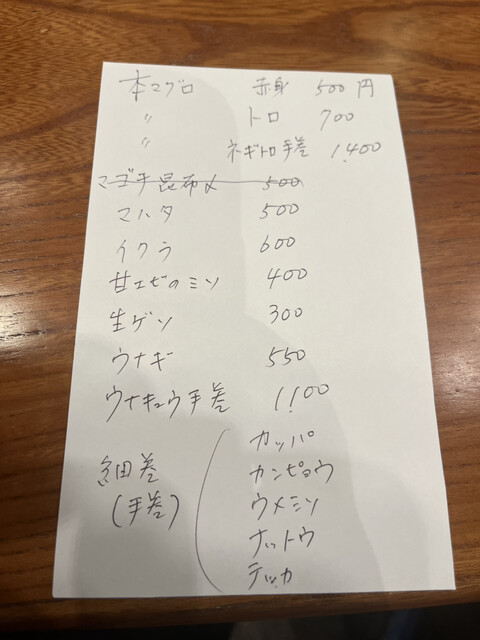 本マグロ 赤身 500円
〃 トロ 700
〃 ネギトロ手巻 1,400
マゴチ昆布〆 500
マハタ 500
イクラ 600
甘エビのミソ 400
生ゲソ 300
ウナギ 550
ウナキュウ手巻 1,100
細巻
(手巻)
カッパ
カンピョウ
ウメミソ
ナットウ
テッカ